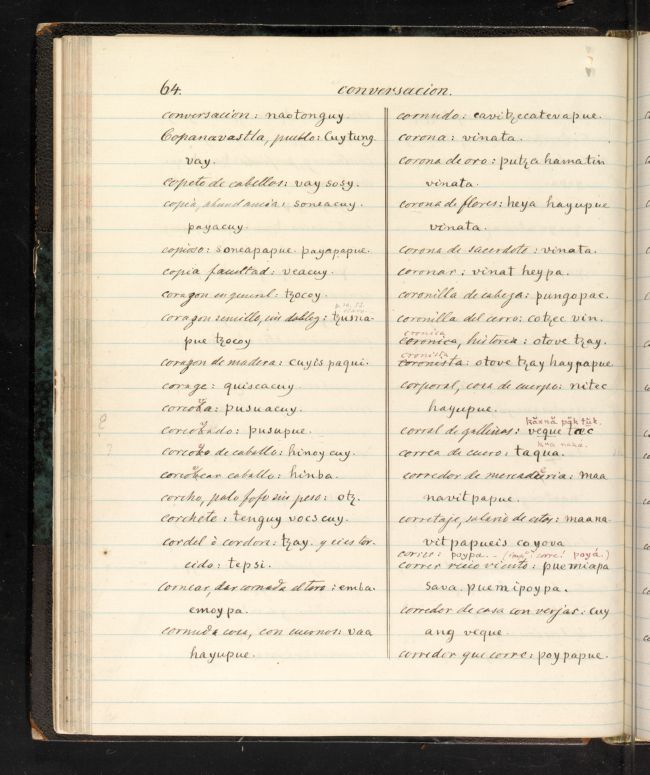 64.
conversacion.
conversacion: naotonguy.
Copanavastla, pueblo: Cuytung
vay.
copete de cabellos: vay sosy.
copia, abundancia: soneacuy.
payacuy.
copioso: soneapapue. payapapue.
copia facultad: veacuy.
coraçon en general: tzocoy.
coraçon sencillo, sin doblez: tzusna-
pue tzocoy
coraçon de madera: cuyis paqui.
corage: quiscacuy.
corcoba: pusuacuy.
corcobado: pusupue.
corcobo de caballo: hinoy cuy.
corcobear caballo: hinba.
corcho, palo fofo sin peso: otz.
corchete: tenguy vocscuy.
cordel ò cordon: tzay. y si es tor-
cido: tepsi.
cornear, dar cornada el toro: emba.
emoypa.
cornuda cosa, con cuernos: vaa
hayupue.
cornudo: cavitzecatevapue.
corona: vinata.
corona de oro: putzca hamatin
vinata.
corona de flores: heya hayupue
vinata.
corona de sacerdote: vinata.
coronar: vinat heypa.
coronilla de cabeza: pungopac.
coronilla del cerro: cotzec vin.
cronica
coronica, historia: otove tzay.
cronista
coronista: otove tzay haypapue.
corporal, cosa de cuerpo: nitec
hayupue.
corral de gallinas: veque tæc
correa de cuero: taqua.
corredor de mercaderia: maa
navit papue.
corretaje, salario de estos: maana-
vit papueis coyova
correr: poypa. - (imp. corre! poyá.)
correr recio viento: puemiapa
sava. puemipoypa.
corredor de casa con verjas: cuy
ang veque.
corredor que corre: poypapue.